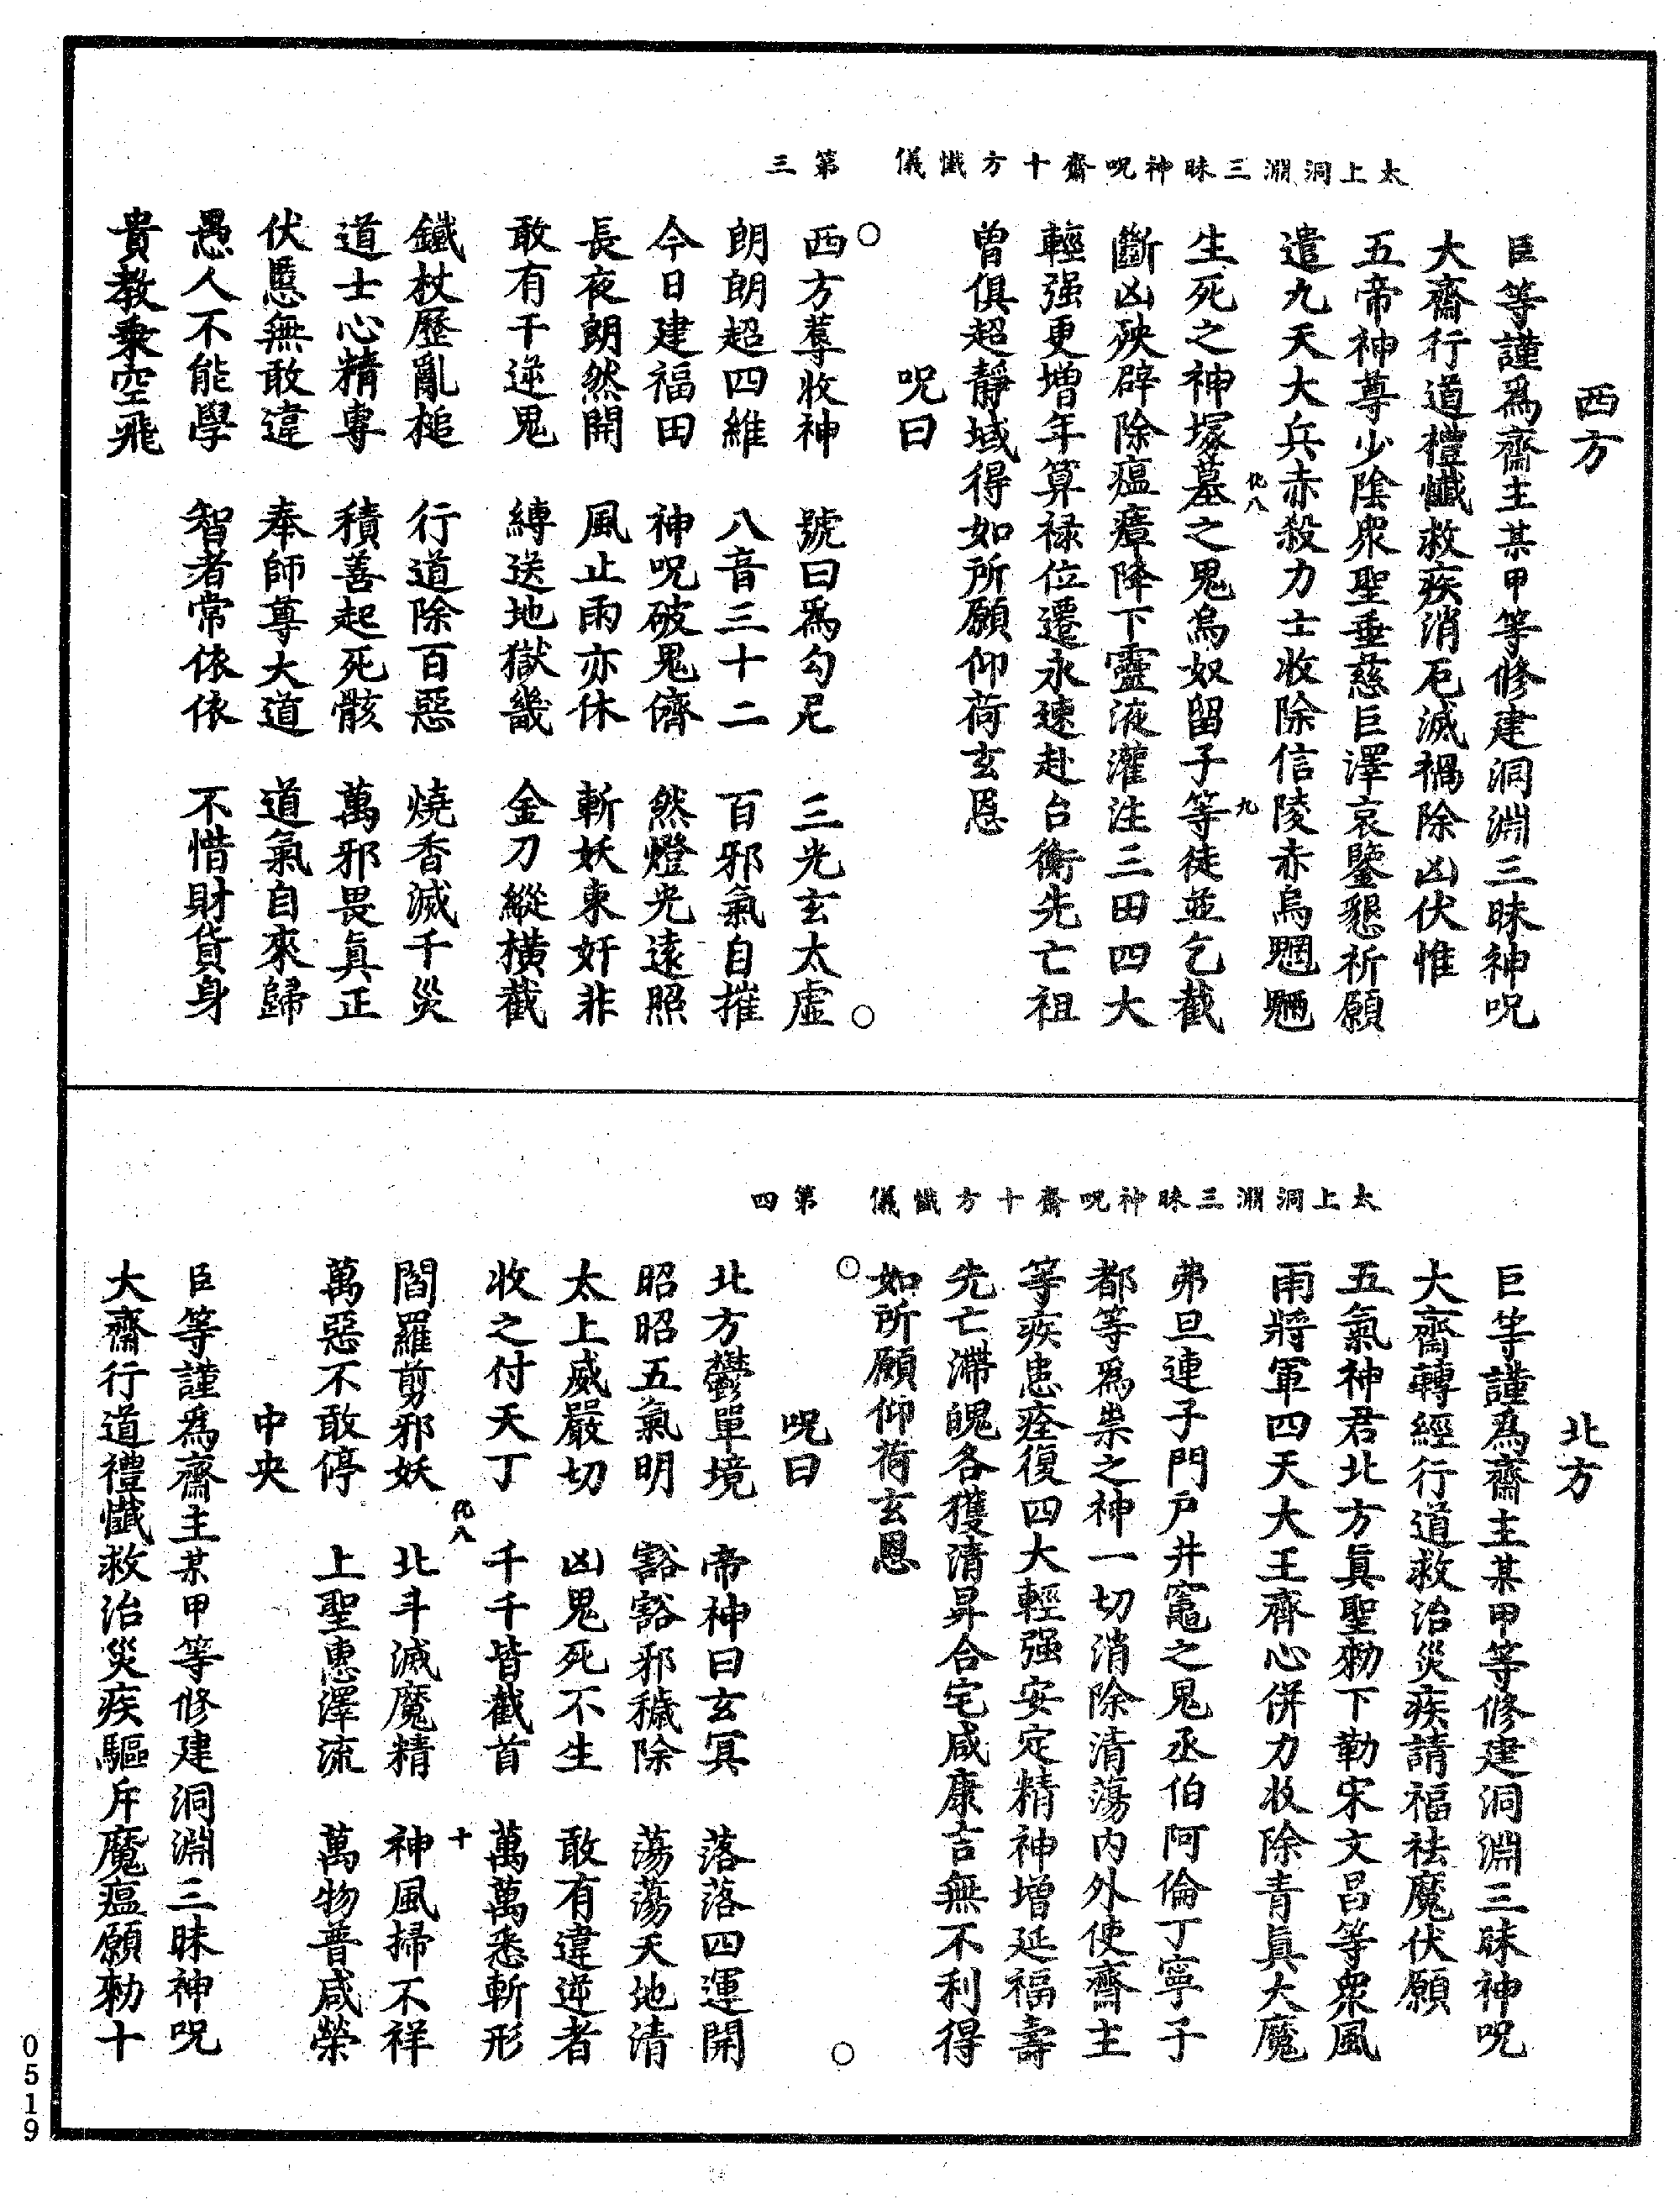 太上洞淵三昧神呪齋十方懺儀　第三
西方
臣等謹爲齋主某甲等修建洞淵三昧神呪
大齋行道禮懺救疾消厄滅禍除凶伏惟
五帝神尊少陰衆聖垂慈巨澤哀鑒懇祈願
遣九天大兵赤殺力士收除信陵赤烏魍魎
化八　九
生死之神塚墓之鬼烏奴留子等徒並乞截
斷凶殃辟除瘟瘴降下靈液灌注三田四大
輕强更增年算禄位遷永速赴台衡先亡祖
曾俱超靜域得如所願仰荷玄恩
呪曰
西方蓐收神　號曰爲勾尼　三光玄太虛
朗朗超四維　八音三十二　百邪氣自摧
今日建福田　神呪破鬼儕　然燈光遠照
長夜朗然開　風止雨亦休　斬妖束奸非
敢有干逆鬼　縛送地獄畿　金刀縱橫截
鐵杖歷亂搥　行道除百惡　燒香滅千災
道士心精專　積善起死骸　萬邪畏眞正
伏慝無敢違　奉師尊大道　道氣自來歸
愚人不能學　智者常依依　不惜財貨身
貴教乗空飛
太上洞淵三昧神呪齋十方懺儀　第四
北方
臣等謹爲齋主某甲等修建洞淵三昧神呪
大齋轉經行道救治災疾請福祛魔伏願
五氣神君北方眞聖勑下勒宋文呂等衆風
雨將軍四天大王齊心併力收除青眞大魔
弗旦連子門戸井竈之鬼丞伯阿倫丁寧子
都等爲祟之神一切消除清蕩内外使齋主
等疾患痊復四大輕强安定精神增延福壽
先亡滯魄各獲清昇合宅咸康吉無不利得
如所願仰荷玄恩
呪曰
北方鬱單境　帝神曰玄冥　落落四運開
昭昭五氣明　豁豁邪穢除　蕩蕩天地清
太上威嚴切　凶鬼死不生　敢有違逆者
收之付天丁　千千皆截首　萬萬悉斬形
化八　十
閻羅剪邪妖　北斗滅魔精　神風掃不祥
萬惡不敢停　上聖惠澤流　萬物普咸榮
中央
臣等謹爲齋主某甲等修建洞淵三昧神呪
大齋行道禮懺救治災疾驅斥魔瘟願勑十
0519